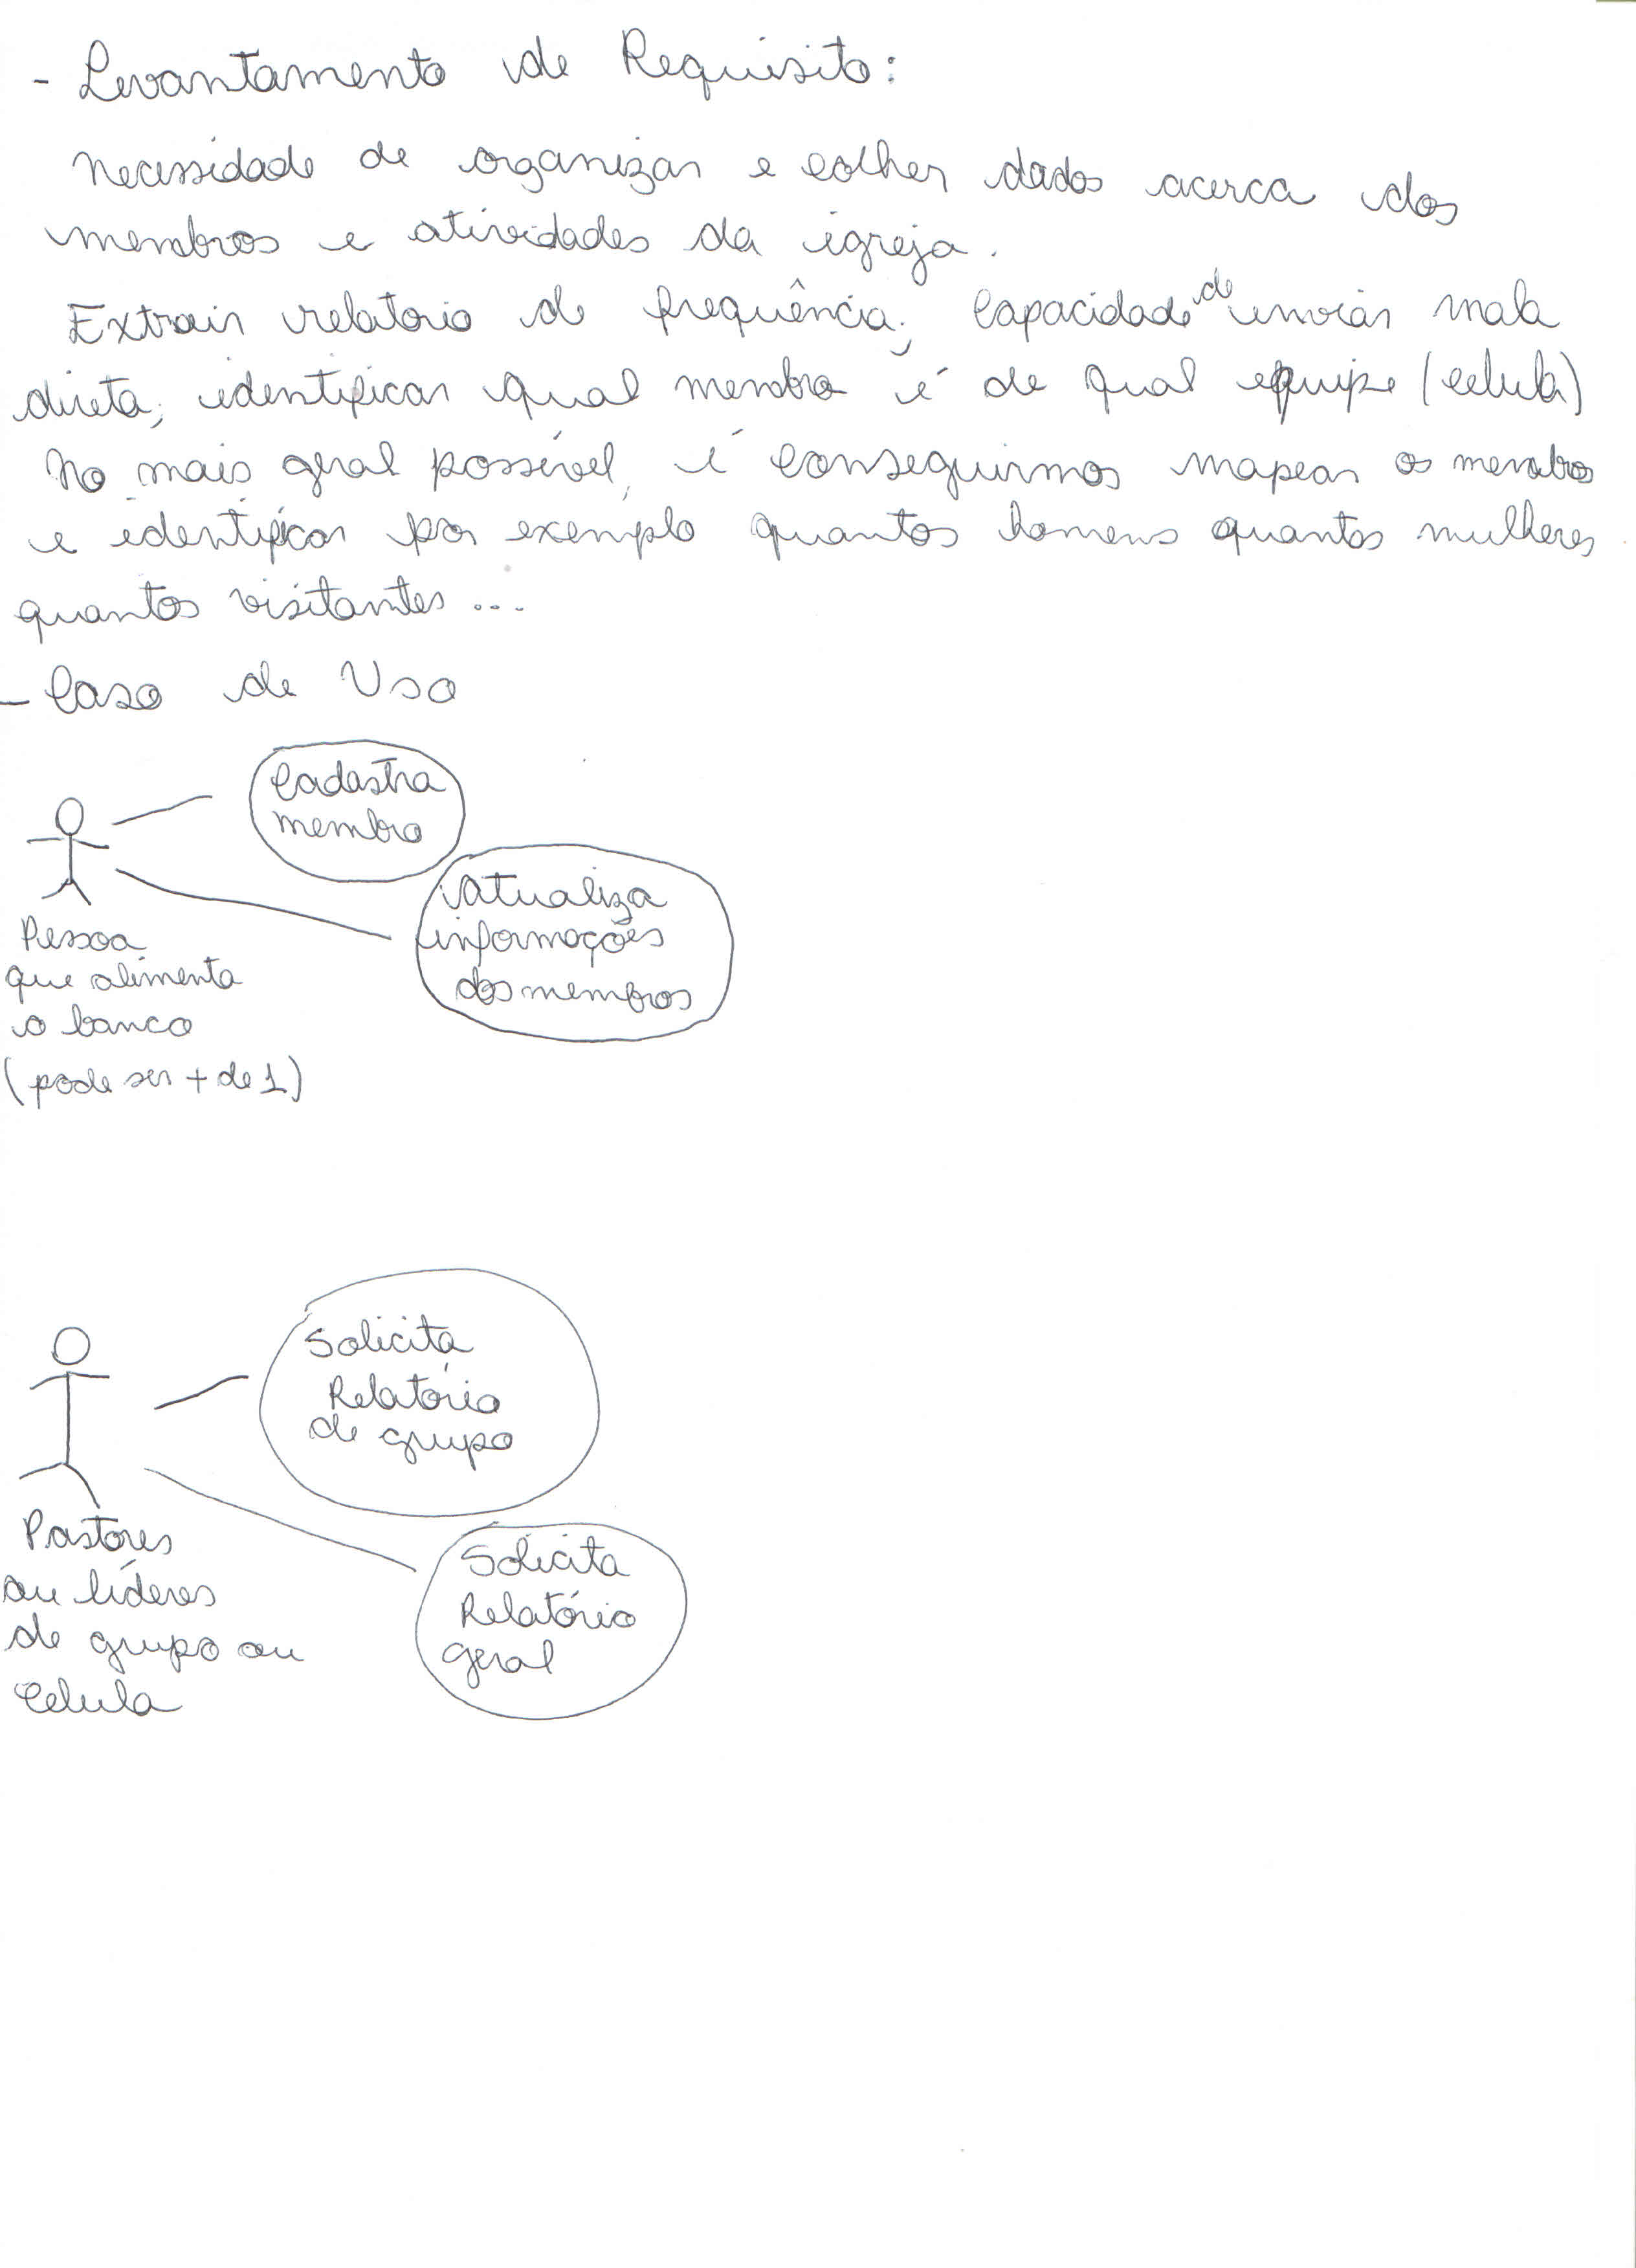 - Levantamento de Requisito:
Necessidade de organizar e colher dados acerca dos
membros e atividades da igreja.
Extrair relatorio de frequência; Capacidade de enviar mala
direta; identificar qual membro é de qual equipe (celula)
No mais geral possível, é conseguirmos mapear os membros
e identificar por exemplo quantos homens quantas mulheres
quantos visitantes ...
- Caso de Uso
Cadastra
membro
Atualiza
informações
dos membros
Pessoa
que alimenta
o banco
(pode ser + de 1)
Solicita
Relatório
de grupo
Pastores
ou líderes
de grupo ou
Celula
Solicita
Relatório
geral